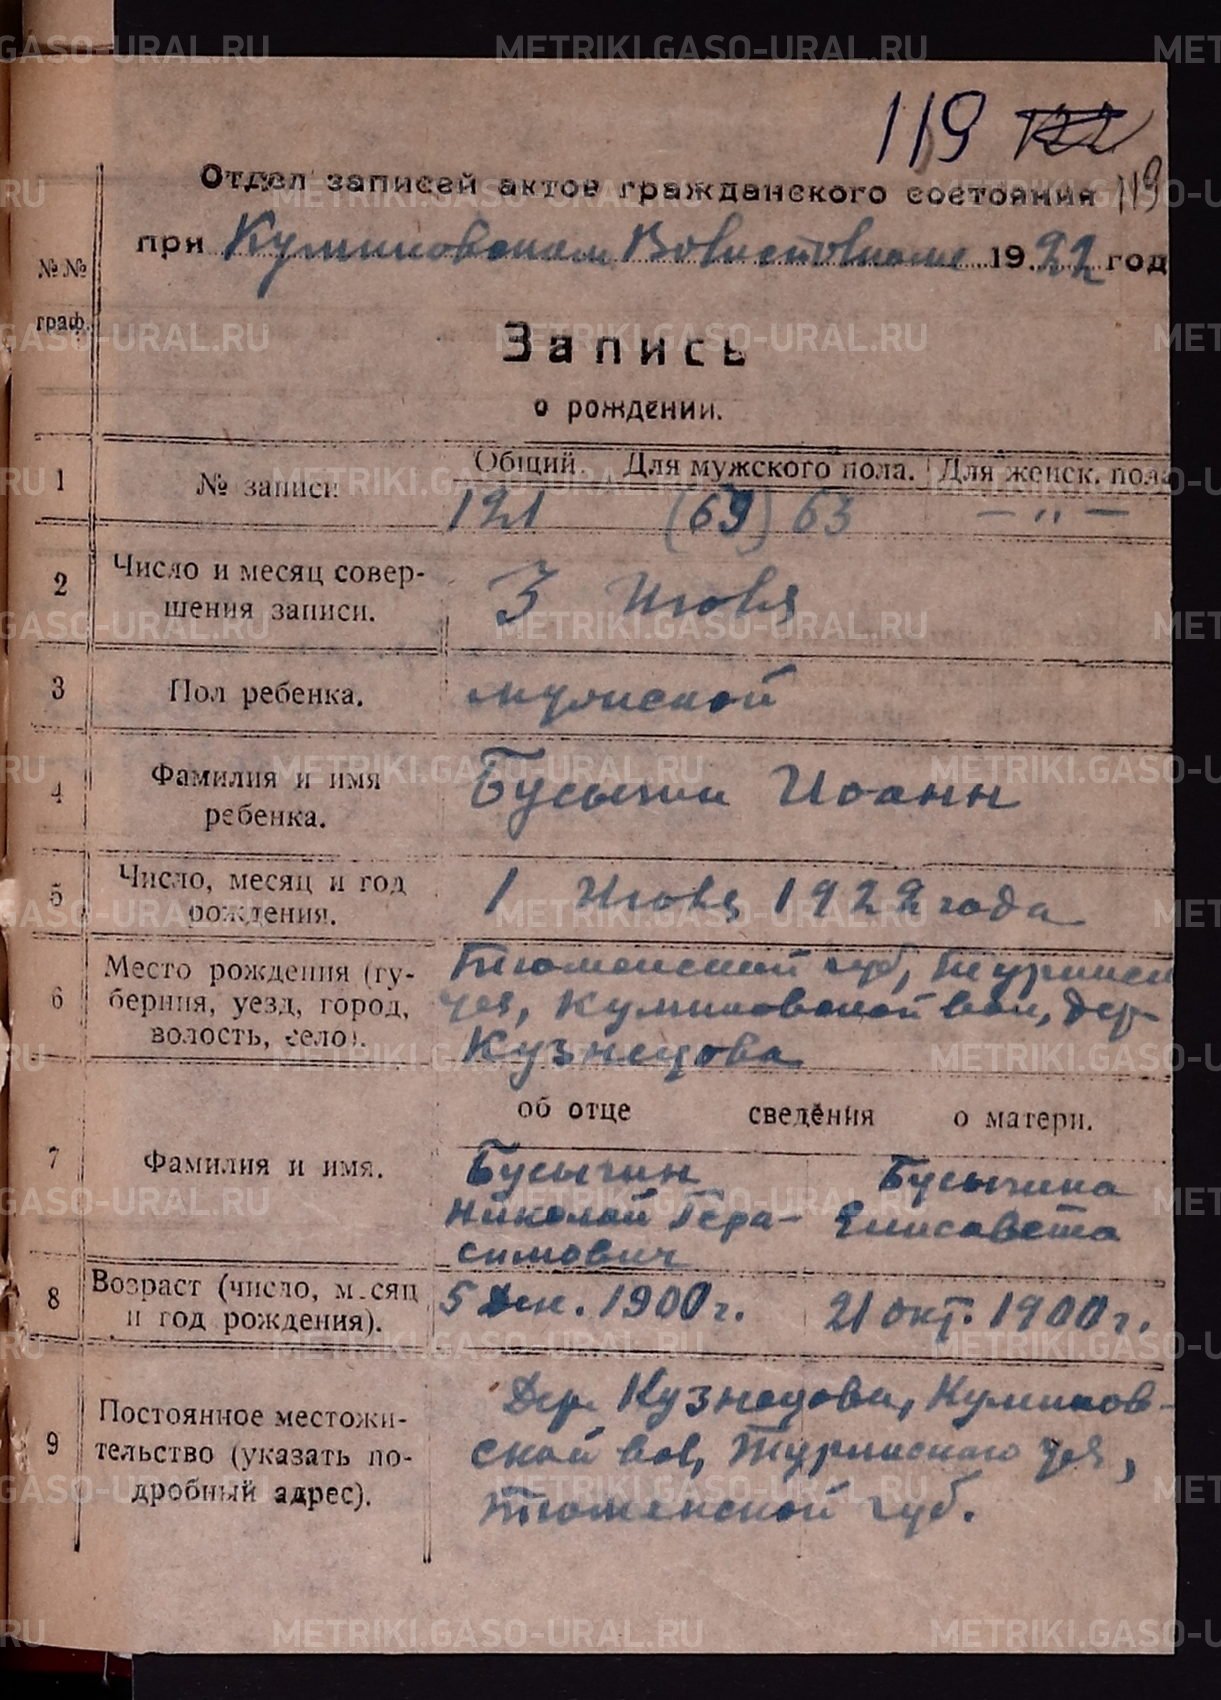 119 122
Отдел записей актов гражданского состояния 119
при Куминовском Волисполкоме 1922 год
№№
граф.
Запись
о рождении.
Общий. Для мужского пола. Для женск. пола
1 № записи
121 (69) 63 — „ —
2 Число и месяц совер- 3 Июля
шения записи.
3 Пол ребенка. мужской
4 Фамилия и имя Бусыгин Иоанн
ребенка.
5 Число, месяц и год 1 Июля 1922 года
рождения.
Место рождения (гу- Тюменской губ, Туринск
6 берния, уезд, город, уез, Куминовской вол, дер
волость, село). Кузнецова
об отце сведения о матери.
7 Фамилия и имя. Бусыгин Бусыгина
Николай Гера- Елисавета
симович
8 Возраст (число, месяц 5 Дек. 1900 г. 21 окт. 1900 г.
и год рождения).
Дер. Кузнецова, Куминов-
Постоянное местожи-
9 тельство (указать по- ской вол, Туринского уез,
дробный адрес). Тюменской губ.
METRIKI.GASO-URAL.RU